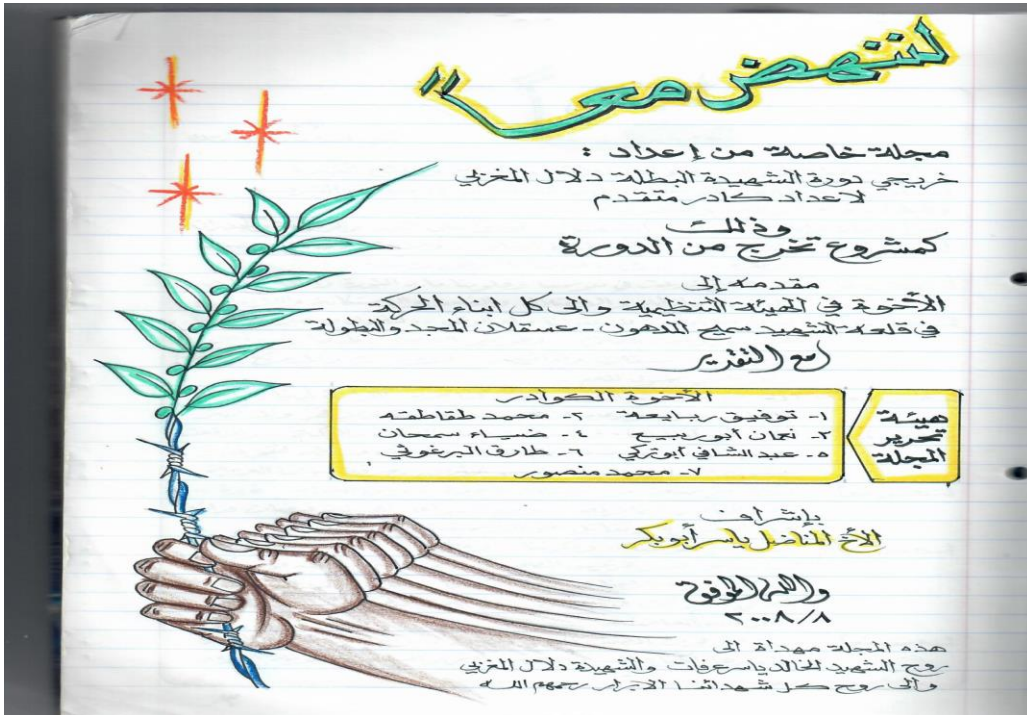 لننهض معاً
مجلة خاصة من إعداد :
خريجي دورة الشهيدة البطلة دلال المغربي
لاعداد كادر متقدم
وذلك
كمشروع تخرج من الدورة
مقدمه إلى
الأخوة في الهيئة التنظيمية والى كل ابناء الحركة
في قلعة الشهيد سميح المدهون - عسقلان المجد والبطولة
مع التقدير
هيئة
تحرير
المجلة
الأخوة الكوادر
١- توفيق ربايعة ٢- محمد طقاطقه
٣- نعمان أبو ربيع ٤- ضياء سمحان
٥- عبد الشافي أبو تركي ٦- طارق البرغوثي
٧- محمد منصور
بإشراف
الأخ المناضل ياسر أبو بكر
والله الموفق
٢٠٠٨/٨
هذه المجلة مهداة الى
روح الشهيد الخالد ياسر عرفات والشهيدة دلال المغربي
والى روح كل شهدائنا الابرار رحمهم الله